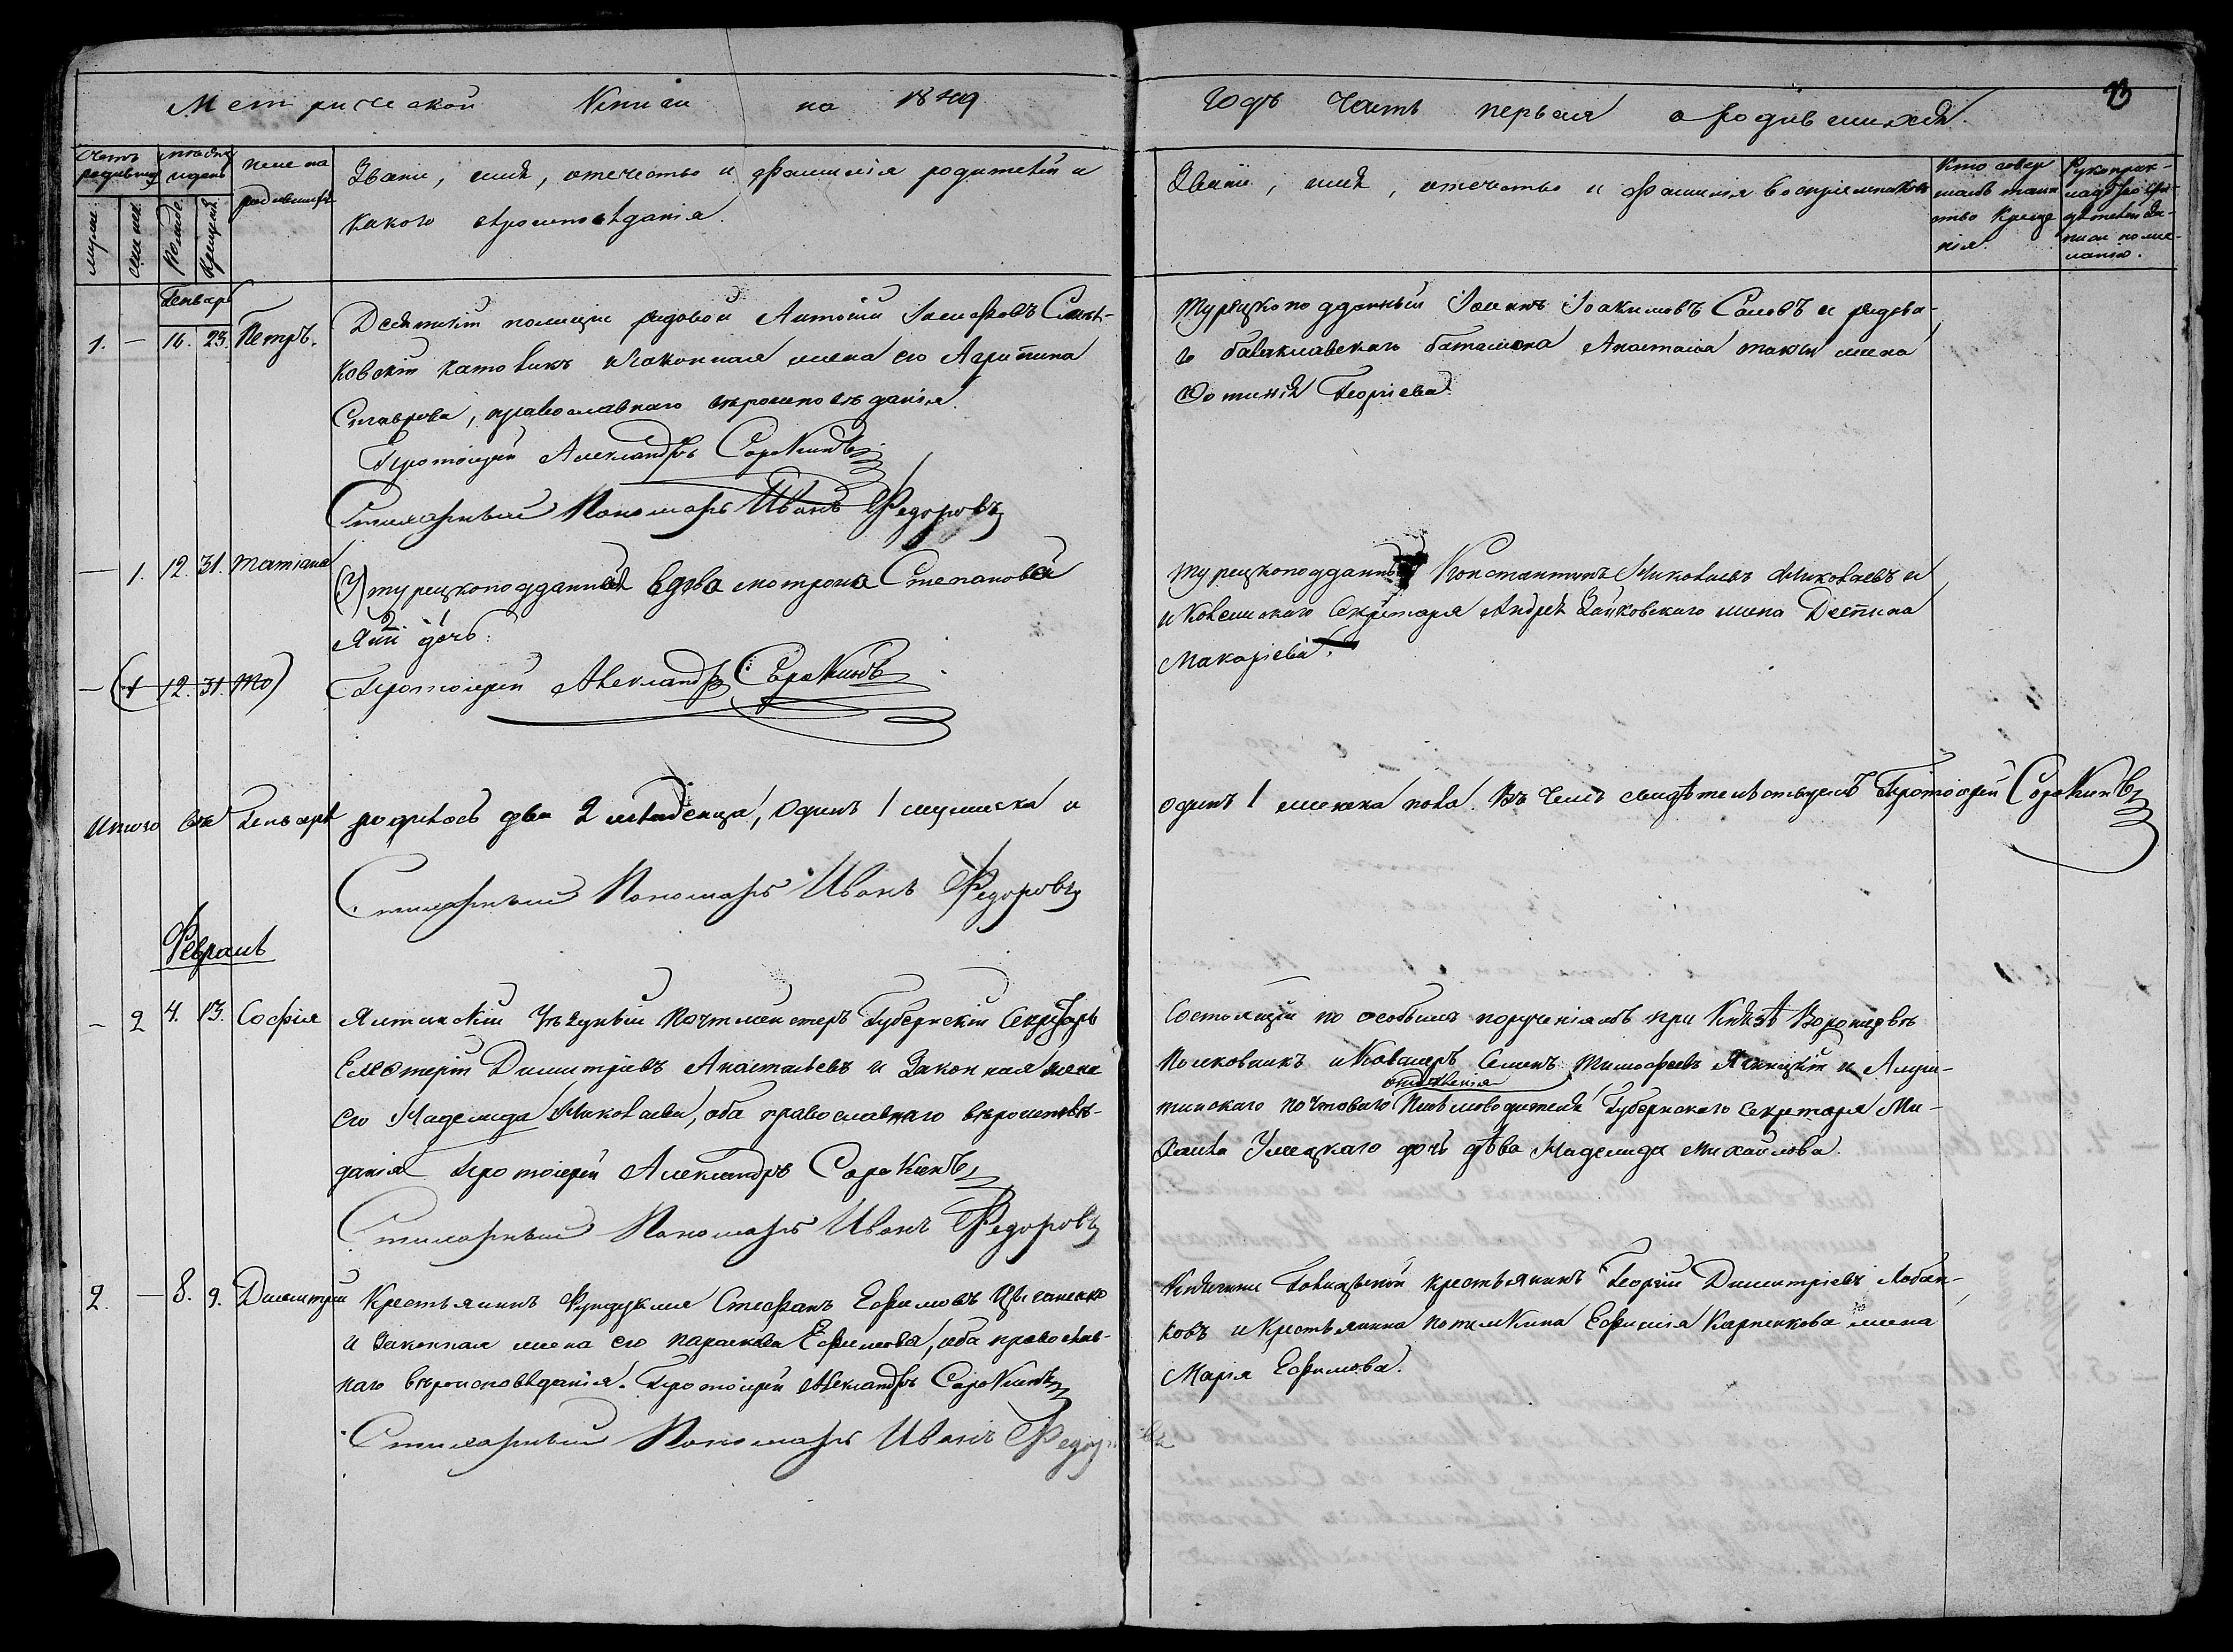 Метрической Книги на 1849
Годъ Часть первая о родившихся.
Счетъ родивших
мѣсяцъ и день
имена родившихъ
Званіе, имя, отечество и фамилія родителей и
какого вѣроисповѣданія.
Званіе, имя, отечество и фамилія воспріемниковъ
Кто совер
шалъ таин
ство креще
нія.
Рукоприк-
ладство сви-
дѣтелей за-
писи по же-
ланію.
мужс.
женск.
Рожде.
Крещен.
Генварь
1. — 16. 23. Петръ.
Десятскій полиціи рядовой Антоній Іосифовъ
ковскій католикъ и законная жена его Агрипина
Ставрова, православнаго вѣроисповѣданія.
Протоіерей Александръ Сорокинъ
Стихарный Пономарь Иванъ Федоровъ
Турецкоподданный Іоаннъ Іоакимовъ Саповъ и рядова-
го балаклавскаго баталіона Анастаса жена
Фотинія Георгіева.
— 1. 12. 31. Татіана
(У) турецкоподданной вдова Мотрона Степановой
дочь.
Протоіерей Александръ Сорокинъ
— (1 12. 31. То)
турецкоподданный Константинъ Николаевъ Николаевъ и
Коллежскаго Секретаря Андрея Зайковскаго жена Деспина
Макаріева.
Итого въ Генварѣ родилось два 2 младенца, одинъ 1 мужеска и
одинъ 1 женска пола. Въ чемъ свидѣтельствуемъ Протоіерей Сорокинъ
Стихарный Пономарь Иванъ Федоровъ
Февраль
— 2 4. 13. Софія
Ялтинскій Уѣздный Почтмейстеръ Губернскій Секретарь
Елевтерій Димитріевъ Анастасьевъ и Законная жена
его Надежда Николаева, оба православнаго вѣроисповѣ-
данія Протоіерей Александръ Сорокинъ
Стихарный Пономарь Иванъ Федоровъ
Состоящій по особымъ порученіямъ при Князѣ Воронцовѣ
Полковникъ и Кавалеръ Семенъ Тимофеевъ Яницкій и Алуш-
отдѣленія
тинскаго почтоваго Письмоводителя Губернскаго Секретаря Ми-
хаила Умецкаго дочь дѣва Надежда Михайлова.
2. — 8. 9. Димитрій
Крестьянинъ Фундуклея Стефанъ Ефимовъ Цыганенко
и Законная жена его Параскева Ефимова, оба православ-
наго вѣроисповѣданія. Протоіерей Александръ Сорокинъ
Стихарный Пономарь Иванъ Федоровъ
Княгини Голицыной крестьянинъ Георгій Димитріевъ Лобан-
ковъ и крестьянина Потемкина Ефимія Карпенкова жена
Марія Ефимова.